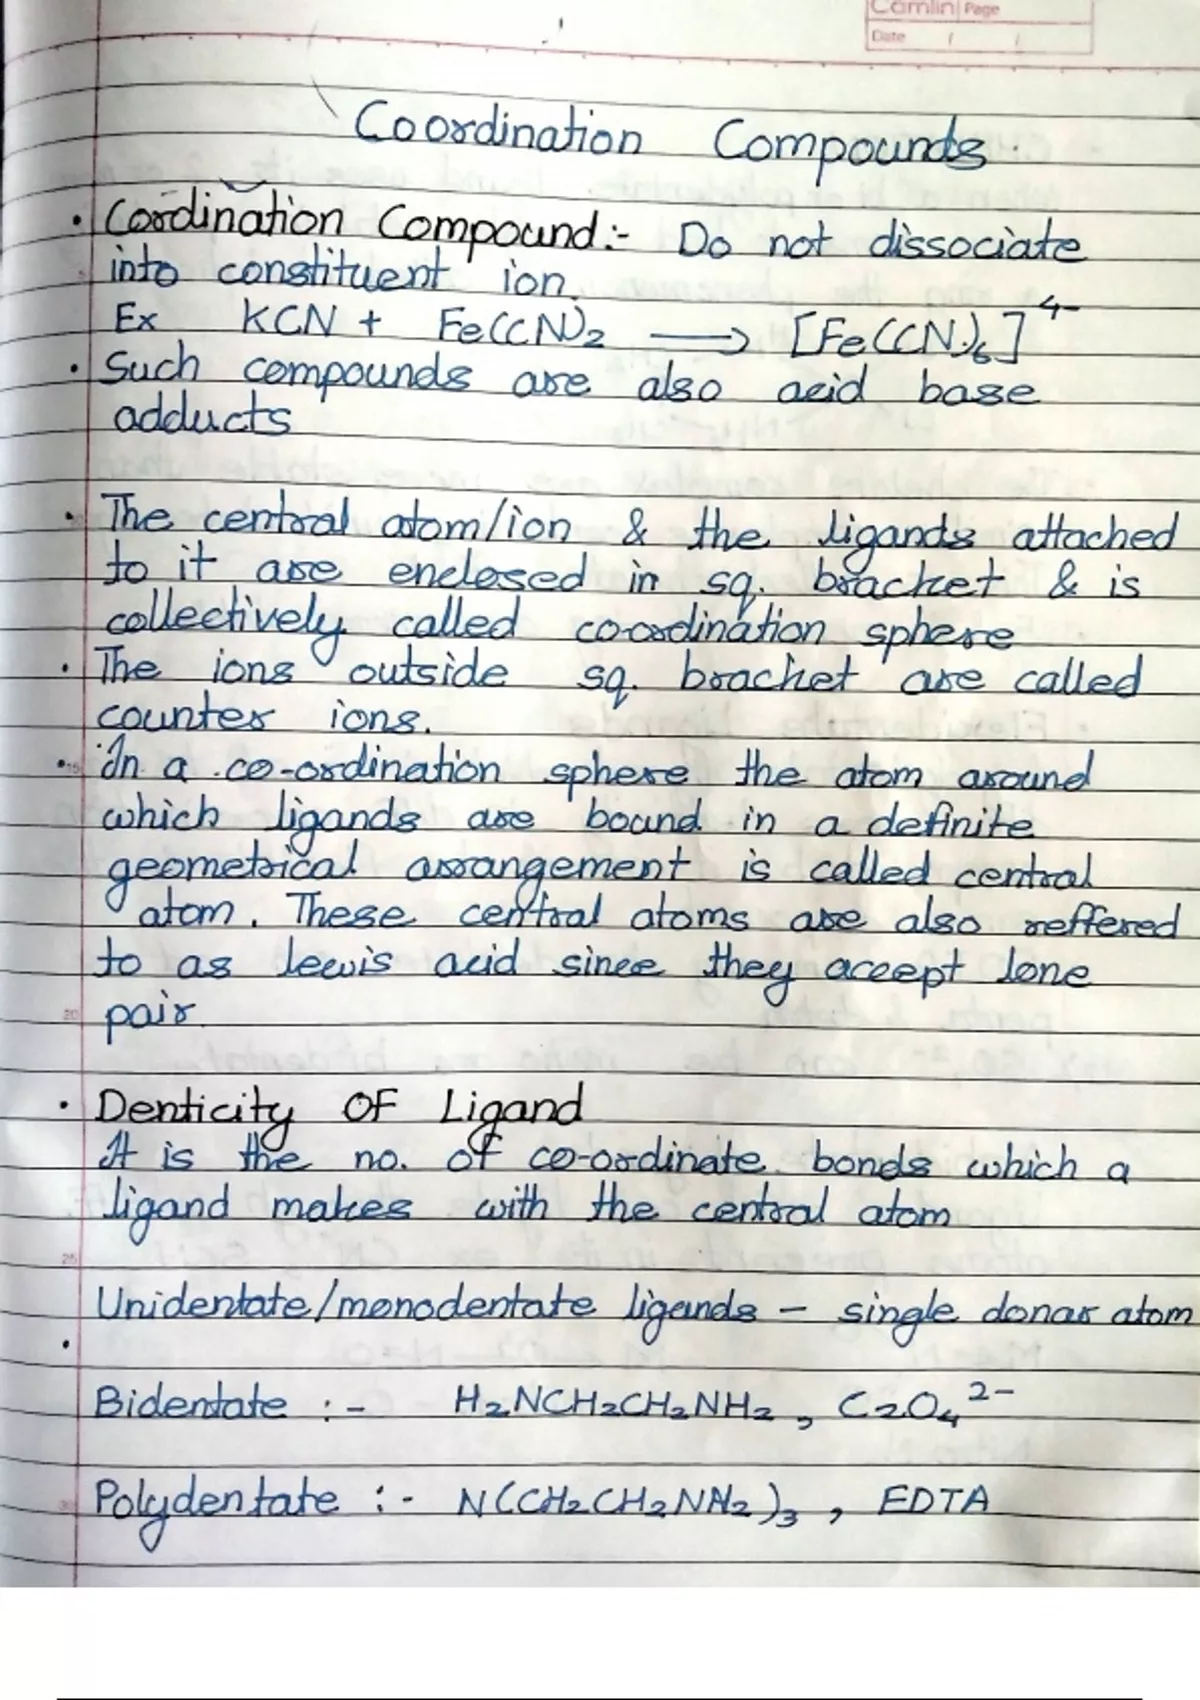 Camlin Page
Date / /
Coordination Compounds.
• Coordination Compound:- Do not dissociate
into constituent ion.
Ex KCN + Fe(CN)₂ ⟶ [Fe(CN)₆]⁴⁻
• Such compounds are also acid base
adducts
• The central atom/ion & the ligands attached
to it are enclosed in sq. bracket & is
collectively called co-ordination sphere
• The ions outside sq. bracket are called
counter ions.
• In a co-ordination sphere the atom around
which ligands are bound in a definite
geometrical arrangement is called central
atom. These central atoms are also reffered
to as lewis acid since they accept lone
20 pair.
• Denticity OF Ligand
It is the no. of co-ordinate bonds which a
ligand makes with the central atom
25
Unidentate/monodentate ligands - single donar atom
•
Bidentate :- H₂NCH₂CH₂NH₂, C₂O₄²⁻
Polydentate :- N(CH₂CH₂NH₂)₃, EDTA